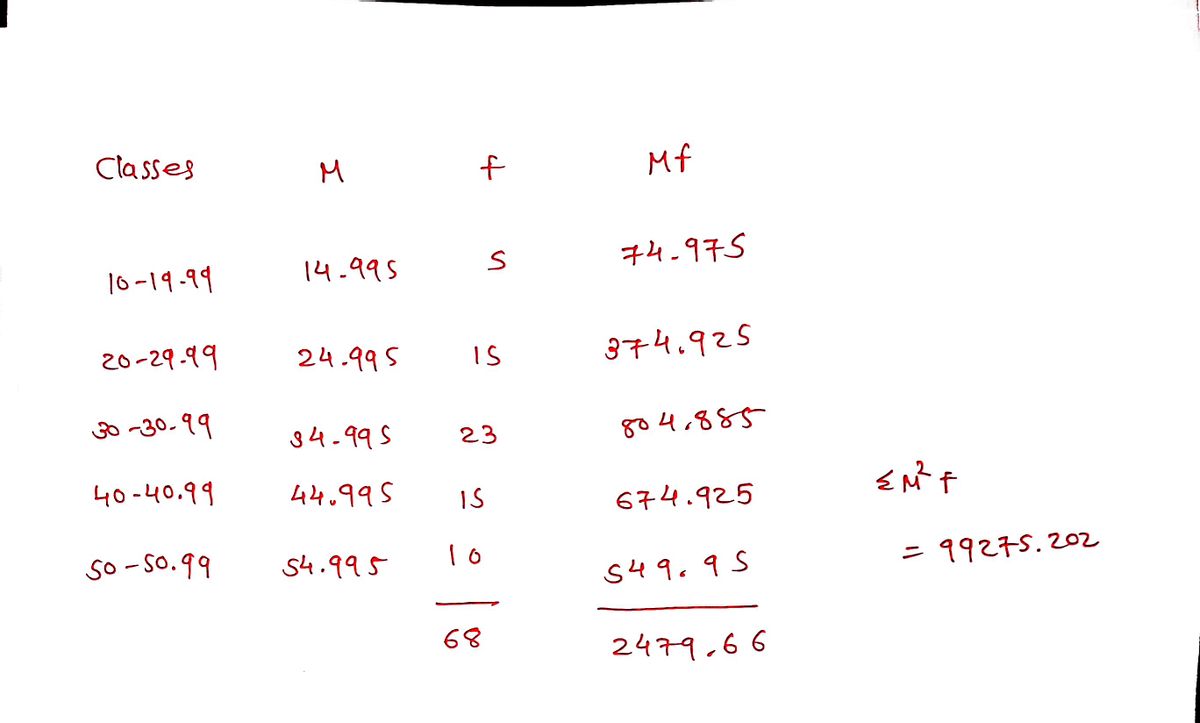 Classes M f Mf
10-19.99 14.995 5 74.975
20-29.99 24.995 15 374.925
30-30.99 34.995 23 804.885
40-40.99 44.995 15 674.925
Σ M² f
50-50.99 54.995 10 549.95
= 99275.202
68 2479.66